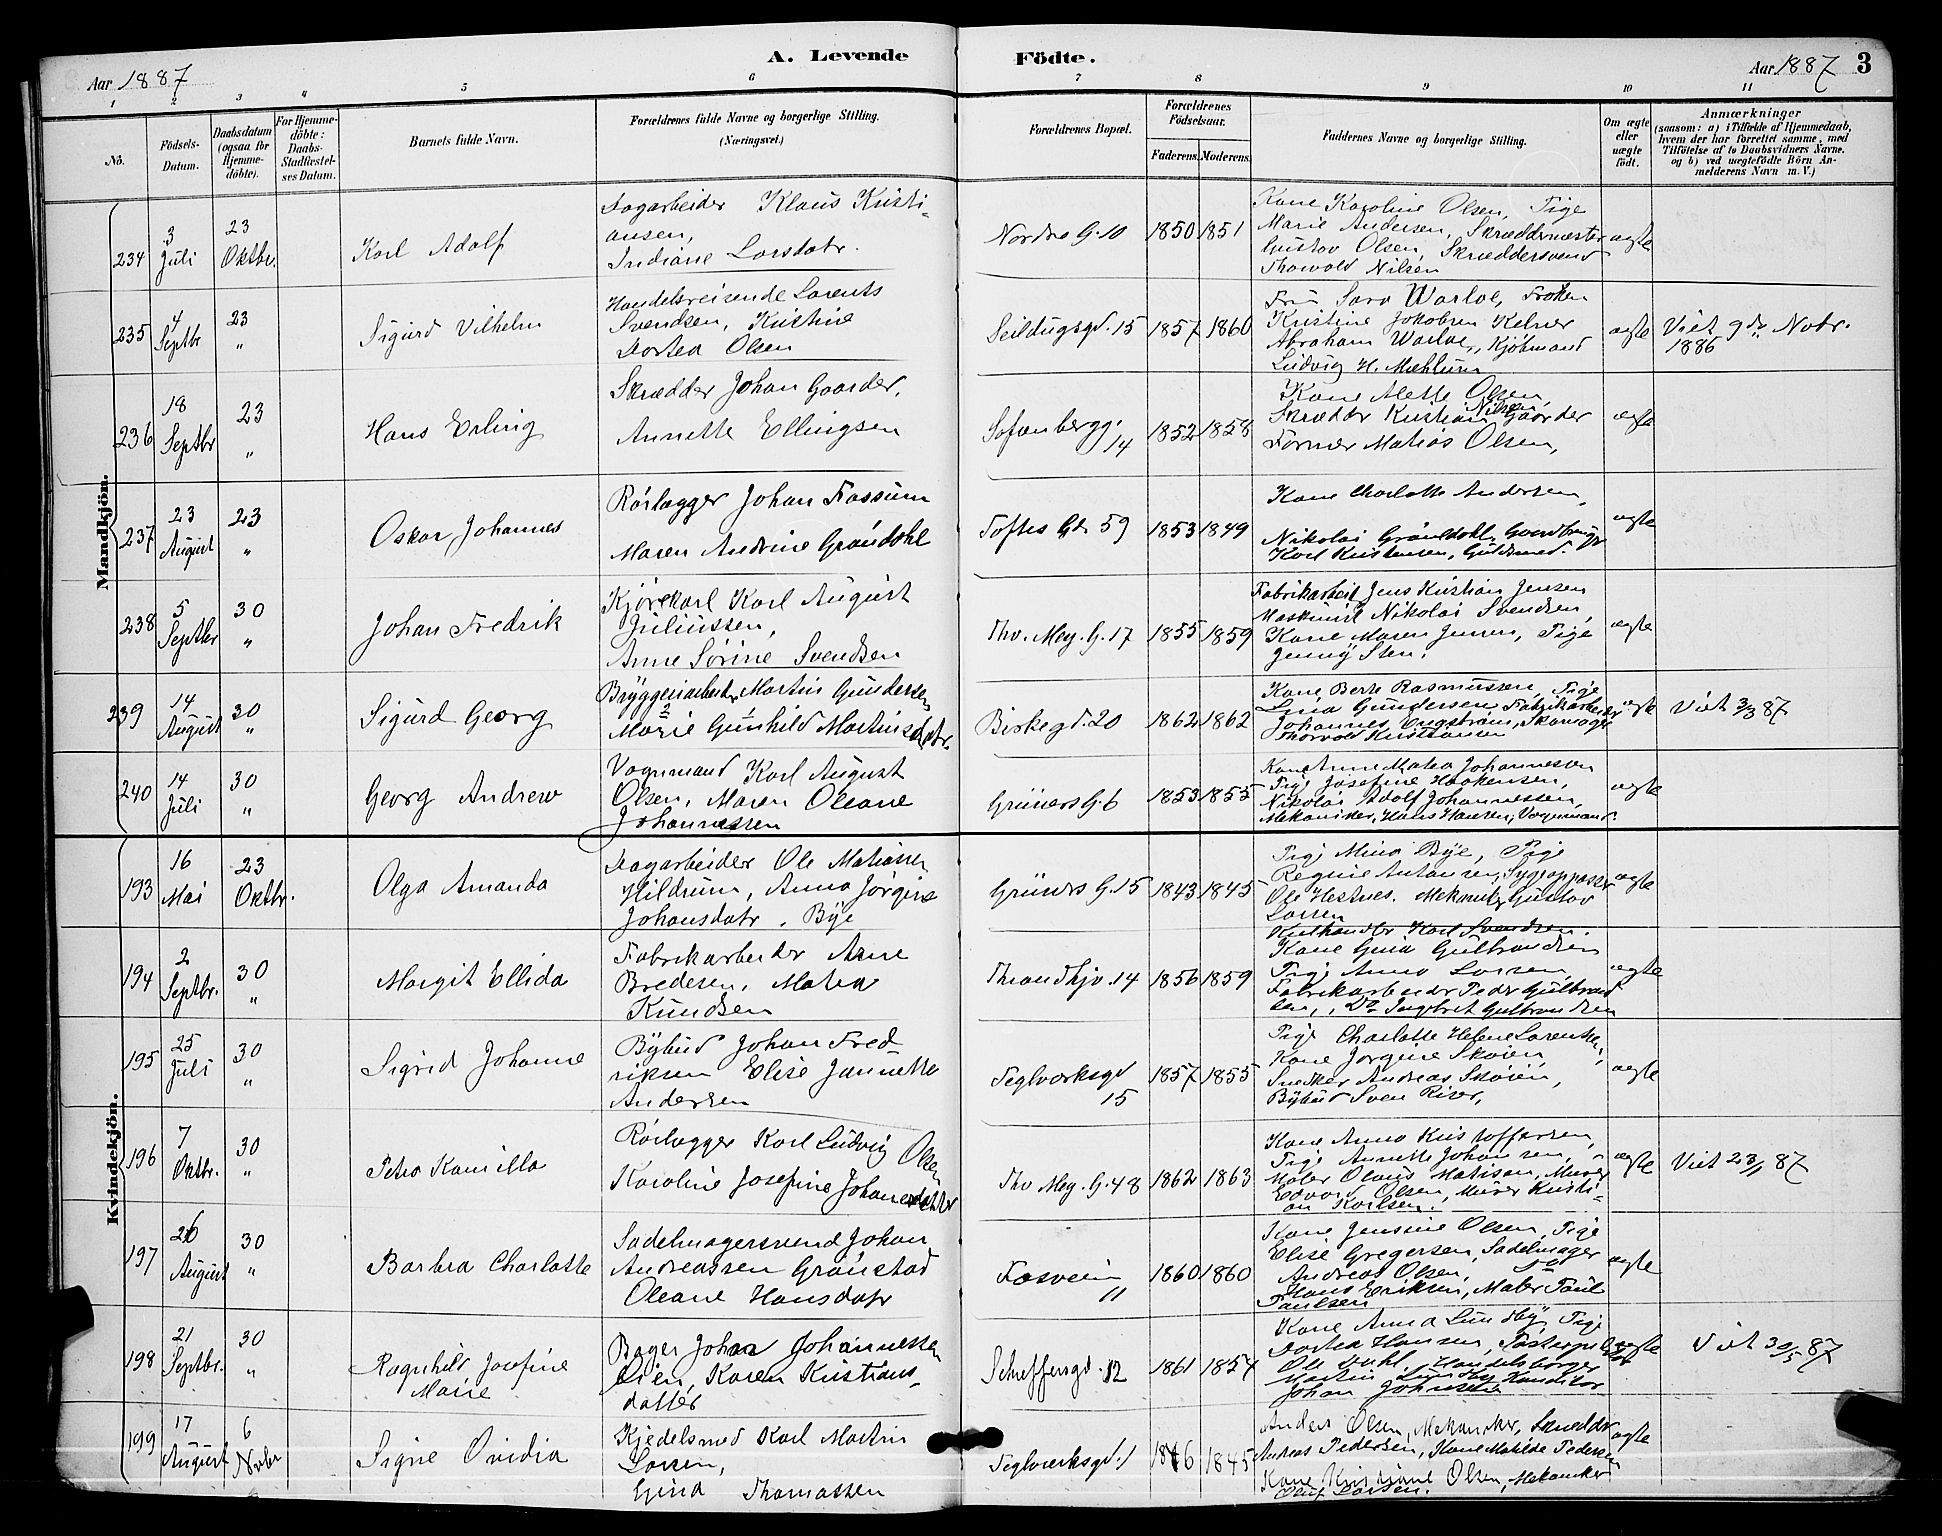 A. Levende Födte.
Aar 1887
Aar 1887 3
1 2 3 4 5 6 7 8 9 10 11
No.
Födsels-Datum.
Daabsdatum (ogsaa for Hjemmedöbte).
For Hjemmedöbte: Daabs-Stadfæstelses Datum.
Barnets fulde Navn.
Forældrenes fulde Navne og borgerlige Stilling.
(Næringsvei.)
Forældrenes Bopæl.
Forældrenes Födselsaar.
Faderens. Moderens.
Faddernes Navne og borgerlige Stilling.
Om ægte eller uægte födt.
Anmærkninger
(saasom: a) i Tilfælde af Hjemmedaab,
hvem der har forrettet samme, med
Tilföielse af to Daabsvidners Navne.
og b) ved uegtefödte Börn An-
melderens Navn m. V.)
Mandkjön.
234 3 Juli 23 Oktbr. Karl Adolf
Dagarbeider Klaus Kristi-
ansen,
Indiane Larsdatr.
Nordre G. 10 1850 1851
Kone Karoline Olsen, Pige
Marie Andersen, Skræddermester
Gustav Olsen, Skræddersvend
Thorvald Nilsen
ægte
235 4 Septbr 23 " Sigurd Vilhelm
Handelsreisende Lorents
Svendsen, Kristine
Dortea Olsen
Seildugsgd. 15 1857 1860
Fru Sara Warloe, Frøken
Kristine Jakobsen Kelner
Abraham Warloe, Kjøbmand
Ludvig H. Mæhlum
ægte Viet 9de Novbr. 1886
236 18 Septbr 23 " Hans Erling
Skrædder Johan Gaarder,
Annette Ellingsen
Sofienbergg. 14 1852 1858
Kone Mette Olsen,
Skrædder Kristian Nilsen Gaarder
Former Matias Olsen,
ægte
237 23 August 23 " Oskar Johannes
Rörlægger Johan Fossum
Maren Andrine Gröndahl
Toftes Gd. 59 1853 1849
Kone Charlotte Andersen,
Nikolai Gröndahl, Gaardbruger
Karl Kristensen, Guldsmed.
ægte
238 5 Septbr 30 " Johan Fredrik
Kjörekarl Karl August
Juliussen,
Anne Sörine Svendsen
Thv. Mey. G. 17 1855 1859
Fabrikarbeid Jens Kristian Jensen
Maskinist Nikolai Svendsen,
Kone Maren Jensen, Pige
Jenny Sten.
ægte
239 14 August 30 " Sigurd Georg
Bryggeriarbeidr Martin Gundersen
Marie Gunhild Martinsdatr.
Birkegd. 20 1862 1862
Kone Berte Rasmussen, Pige
Lina Gundersen Fabrikarbeider
Johannes Engström, Skomager
Thorvald Kristiansen
ægte Viet 3/3 87
240 14 Juli 30 " Georg Andrew
Vognmand Karl August
Olsen, Maren Oleane
Johannessen
Grüners G. 6 1853 1855
Kone Anne Matea Johannesen
Pige Josefine Haakensen,
Nikolai Adolf Johannessen,
Mekaniker, Hans Hansen, Vognmand.
ægte
Kvindekjön.
193 16 Mai 23 Oktbr. Olga Amanda
Dagarbeider Ole Matiasen
Hildrum, Anna Jørgine
Johansdatr. Bye
Grüners G. 15 1843 1845
Pige Mina Bye, Pige
Regine Antonsen, Sygepasser
Ole Hestnes. Mekaniker Gustav
Larsen
ægte
194 2 Septbr. 30 " Margit Ellida
Fabrikarbeider Arne
Bredesen, Matea
Knudsen
Throndhjv. 14 1856 1859
Kulhandler Karl Svendsen.
Kone Gina Gulbrandsen
Pige Anna Larsen,
Fabrikarbeider Peder Gulbrand
sen, Do Ingebret Gulbrandsen
ægte
195 25 Juli 30 " Sigrid Johanne
Bybud Johan Fred-
riksen Elise Jannette
Andersen
Teglværksgd 15 1857 1855
Pige Charlotte Helene Lorentsen,
Kone Jørgine Skøien,
Snedker Andreas Skøien,
Bybud Sven Riser,
ægte
196 7 Oktbr. 30 " Petra Kamilla
Rörlægger Karl Ludvig Olsen
Karoline Josefine Johansdatter
Thv Mey. G. 48 1862 1863
Kone Anna Kristoffersen,
Pige Annette Johansen,
Maler Olaus Matisen, Murer
Edvard Olsen, Murer Kristi-
an Karlsen.
ægte Viet 23/1 87
197 26 August 30 " Barbra Charlotte
Sadelmagersvend Johan
Andreassen Grönstad
Oleane Hansdatr
Fossveien 11 1860 1860
Kone Jensine Olsen, Pige
Elise Gregersen, Sadelmager
Andreas Olsen, Do
Hans Eriksen, Maler Paul
Paulsen
ægte
198 21 Septbr. 30 " Ragnhild Josefine
Marie
Bager Johan Johannessen
Öien, Karen Kristians-
datter
Scheffersgd. 12 1861 1854
Kone Anna Lundby, Pige
Dortea Hansen,
Ole Dahl, Handelsborger
Martin Lundby Konditor
Johan Johnsen
ægte Viet 30/5 87
199 17 August 6 Novbr Signe Ovidia
Kjedelsmed Karl Martin
Larsen,
Gina Thomassen
Teglværksgd. 1 1846 1845
Anders Olsen, Mekaniker, Skrædder
Andreas Pedersen, Kone Matilde Pedersen
Kone Kristiane Olsen, Mekaniker
Oluf Larsen.
ægte